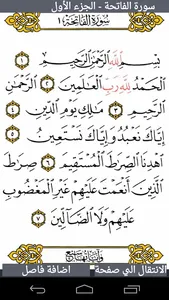 سورة الفاتحة - الجزء الأول
سُورَةُ الْفَاتِحَةِ
بِسْمِ اللَّهِ الرَّحْمَٰنِ الرَّحِيمِ ١
الْحَمْدُ لِلَّهِ رَبِّ الْعَالَمِينَ ٢ الرَّحْمَٰنِ
الرَّحِيمِ ٣ مَالِكِ يَوْمِ الدِّينِ ٤
إِيَّاكَ نَعْبُدُ وَإِيَّاكَ نَسْتَعِينُ ٥
اهْدِنَا الصِّرَاطَ الْمُسْتَقِيمَ ٦ صِرَاطَ
الَّذِينَ أَنْعَمْتَ عَلَيْهِمْ غَيْرِ الْمَغْضُوبِ
عَلَيْهِمْ وَلَا الضَّالِّينَ ٧
الانتقال الي صفحة
اضافة فاصل